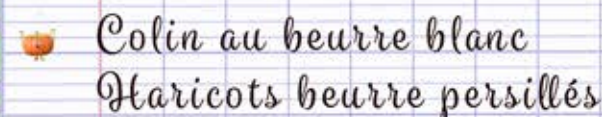 Colin au beurre blanc
Haricots beurre persillés